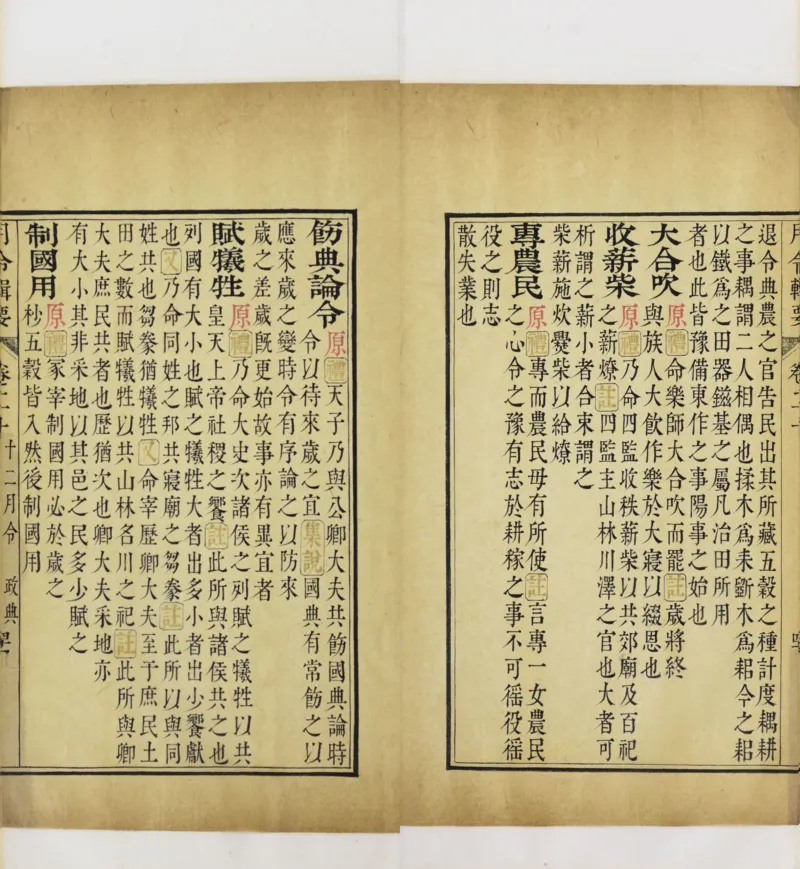 月令輯要
卷二十
退令典農之官告民出其所藏五穀之種計度耦耕
之事耦謂二人相偶也揉木爲耒斵木爲耜今之耜
以鐵爲之田器鎡基之屬凡治田所用
者也此皆豫備東作之事陽事之始也
大合吹原禮命樂師大合吹而罷註歲將終
與族人大飲作樂於大寢以綴思也
收薪柴原禮乃命四監收秩薪柴以共郊廟及百祀
之薪燎註四監主山林川澤之官也大者可
析謂之薪小者合束謂之
柴薪施炊爨柴以給燎
專農民原禮專而農民毋有所使註言專一女農民
之心令之豫有志於耕稼之事不可徭役徭
役之則志
散失業也
飭典論令原禮天子乃與公卿大夫共飭國典論時
令以待來歲之宜集說國典有常飭之以
應來歲之變時令有序論之以防來
歲之差歲旣更始故事亦有異宜者
賦犧牲原禮乃命大史次諸侯之列賦之犧牲以共
皇天上帝社稷之饗註此所與諸侯共之也
列國有大小也賦之犧牲大者出多小者出少饗獻
也又乃命同姓之邦共寢廟之芻豢註此所以與同
姓共也芻豢猶犧牲又命宰歷卿大夫至于庶民土
田之數而賦犧牲以共山林名川之祀註此所與卿
大夫庶民共者也歷猶次也卿大夫采地亦
有大小其非采地以其邑之民多少賦之
制國用原禮冢宰制國用必於歲之
杪五穀皆入然後制國用
月令輯要
卷二十
十二月令
政典